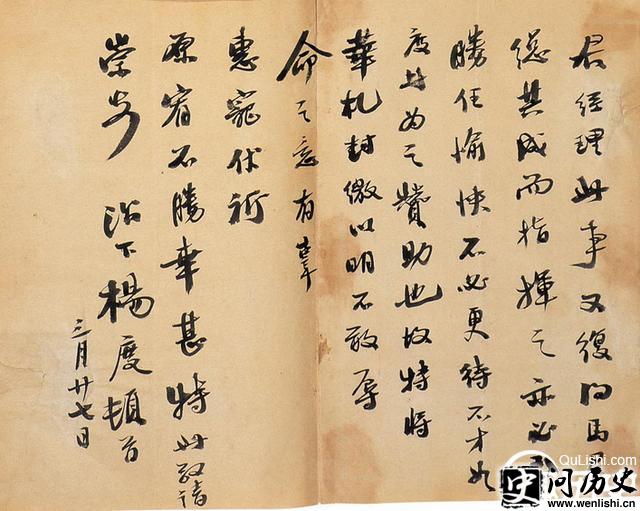 君經理此事又復得馬
總其成而指揮之亦必
勝任愉快不必更待不才如
度者為之贊助也故特將
華札封繳以明不敢辱
命之意有辜
惠寵伏祈
原宥不勝幸甚特此敬請
崇安 治下楊度頓首
三月廿七日
QuLishi.com
史问历史
www.wenlishi.cn